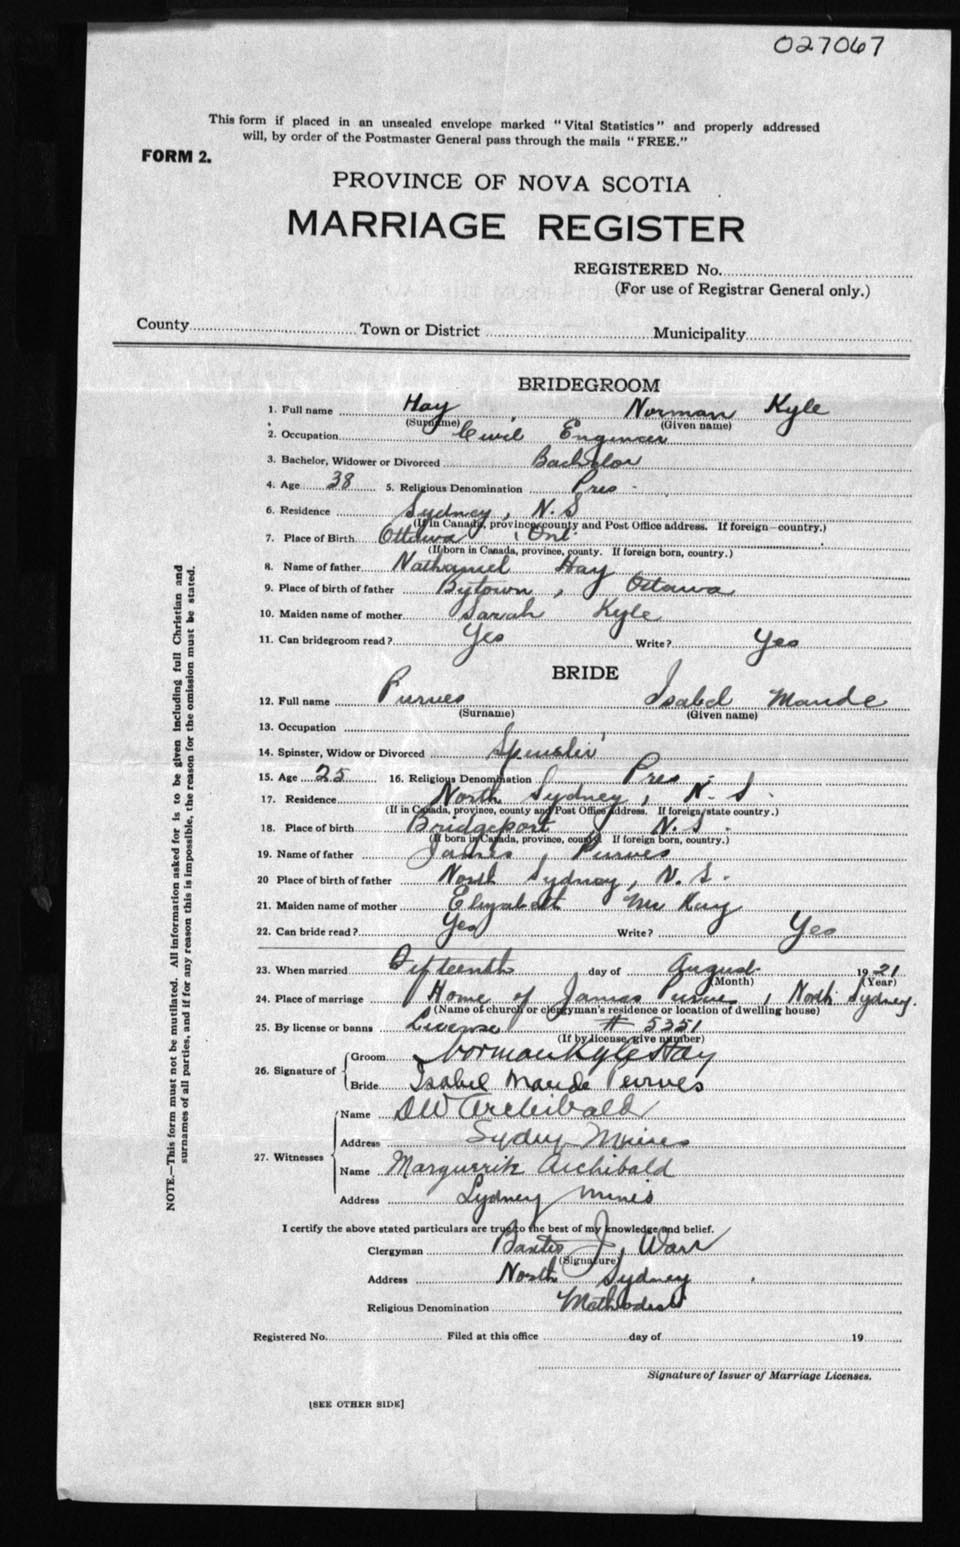 027067
This form if placed in an unsealed envelope marked "Vital Statistics" and properly addressed
will, by order of the Postmaster General pass through the mails "FREE."
FORM 2.
PROVINCE OF NOVA SCOTIA
MARRIAGE REGISTER
REGISTERED No.
(For use of Registrar General only.)
County Town or District Municipality
BRIDEGROOM
1. Full name Hay Norman Kyle
(Surname) (Given name)
2. Occupation Civil Engineer
3. Bachelor, Widower or Divorced Bachelor
4. Age 38 5. Religious Denomination Pres
6. Residence Sydney, N.S
(If in Canada, province, county and Post Office address. If foreign—country.)
7. Place of Birth Ottawa, Ont.
(If born in Canada, province, county. If foreign born, country.)
8. Name of father Nathaniel Hay
9. Place of birth of father Bytown, Ottawa
10. Maiden name of mother Sarah Kyle
11. Can bridegroom read? Yes Write? Yes
BRIDE
12. Full name Purves Isabel Maude
(Surname) (Given name)
13. Occupation
14. Spinster, Widow or Divorced Spinster
15. Age 25 16. Religious Denomination Pres
17. Residence North Sydney, N.S.
(If in Canada, province, county and Post Office address. If foreign/state country.)
18. Place of birth Bridgeport, N.S.
(If born in Canada, province, county. If foreign born, country.)
19. Name of father James Purves
20 Place of birth of father North Sydney, N.S.
21. Maiden name of mother Elizabeth McKay
22. Can bride read? Yes Write? Yes
23. When married Fifteenth day of August 1921
(Month) (Year)
24. Place of marriage Home of James Purves, North Sydney.
(Name of church or clergyman's residence or location of dwelling house)
25. By license or banns License # 5351
(If by license, give number)
26. Signature of Groom Norman Kyle Hay
Bride Isabel Maude Purves
27. Witnesses Name DW Archibald
Address Sydney Mines
Name Marguerite Archibald
Address Sydney Mines
I certify the above stated particulars are true to the best of my knowledge and belief.
Clergyman J. Warr
(Signature)
Address North Sydney
Religious Denomination Methodist
Registered No. Filed at this office day of 19
Signature of Issuer of Marriage Licenses.
[SEE OTHER SIDE]
NOTE.—This form must not be mutilated. All information asked for is to be given including full Christian and
surnames of all parties, and if for any reason this is impossible, the reason for the omission must be stated.